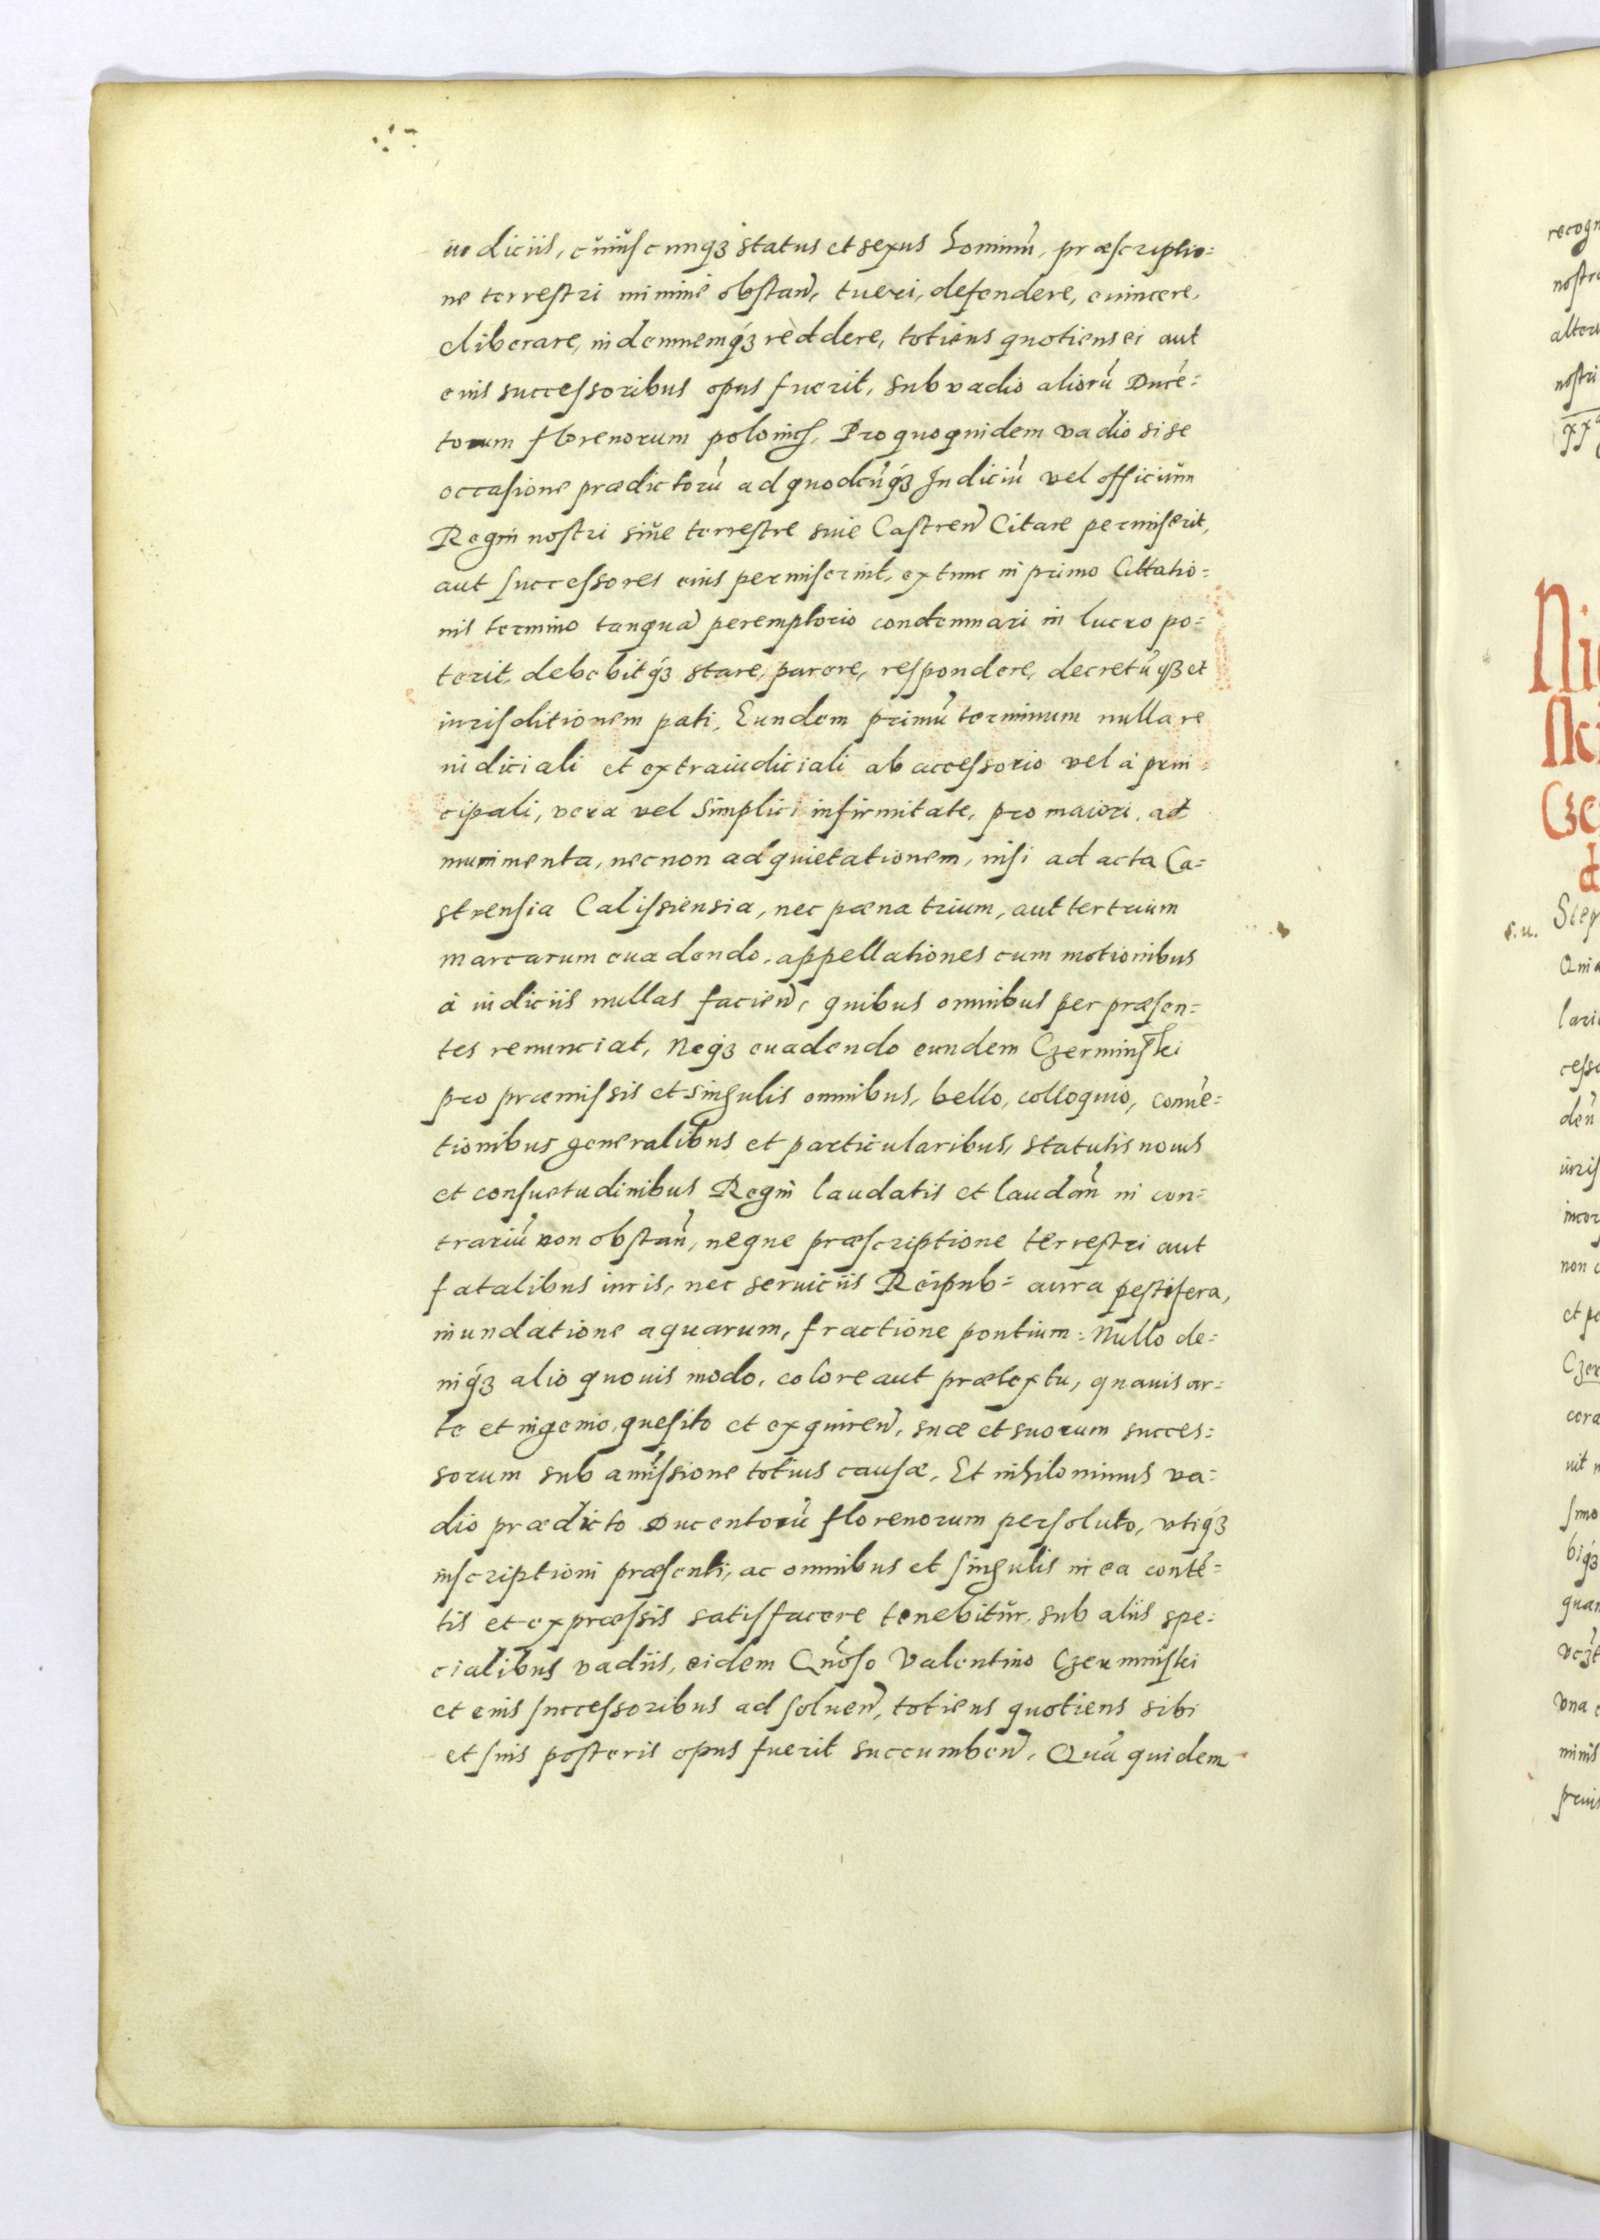 iudiciis, cuiuscunqꝫ status et sexus hominū, præscriptio=
ne terrestri minime obstan̄, tueri, defendere, euincere,
eliberare, indemnemqꝫ reddere, totiens quotiens ei aut
eius successoribus opus fuerit, sub vadio aliorū Ducē=
torum florenorum Pro quoquidem vadio si se
occasione prædictorū ad quodcūqꝫ Iudiciū vel officium
Regni nostri siue terrestre siue Castren̄ Citare permiserit,
aut successores eius permiserint, extunc in primo Citatio=
nis termino tanquā peremptorio condemnari in lucro po=
terit, debebitqꝫ stare, parere, respondere, decretūqꝫ et
iurisditionem pati, Eundem primū terminum nulla re
iudiciali et extraiudiciali ab accessorio vel à prin=
cipali, vera vel simplici infirmitate, pro maiori, ad
munimenta, necnon ad quietationem, nisi ad acta Ca=
strensia Calissiensia, nec pæna trium, aut tertrium
marcarum euadendo, appellationes cum motionibus
à iudiciis nullas facien̄, quibus omnibus per præsen=
tes renunciat, Neqꝫ euadendo eundem Czerminski
pro præmissis et singulis omnibus, bello, colloquio, conuē=
tionibus generalibus et particularibus, statutis nouis
et consuetudinibus Regni laudatis et laudan̄ in con=
trariū non obstan̄, neque præscriptione terrestri aut
fatalibus iuris, nec seruiciis Reipub= aura pestifera,
inundatione aquarum, fractione pontium: Nullo de=
niqꝫ alio quouis modo, colore aut prætextu, quauis ar=
te et ingenio, quesito et exquiren̄, suæ et suorum succes=
sorum sub amissione totius causæ, Et nihilominus va=
dio prædicto Ducentorū florenorum persoluto, vtiqꝫ
inscriptioni præsenti, ac omnibus et singulis in ea contē=
tis et expræssis satisfacere tenebitur, sub aliis spe=
cialibus vadiis, eidem Gn̄oso Valentino Czerminski
et eius successoribus ad soluen̄, totiens quotiens sibi
et suis posteris opus fuerit succumben̄. Quā quidem
recogn
nostr
alter
nostri
Ni
Cze
s.u.
Step
Qui
lari
cess
den̄
iuris
incor
non
et pe
Czer
cora
uit
smo
biqꝫ
quan
una
minis